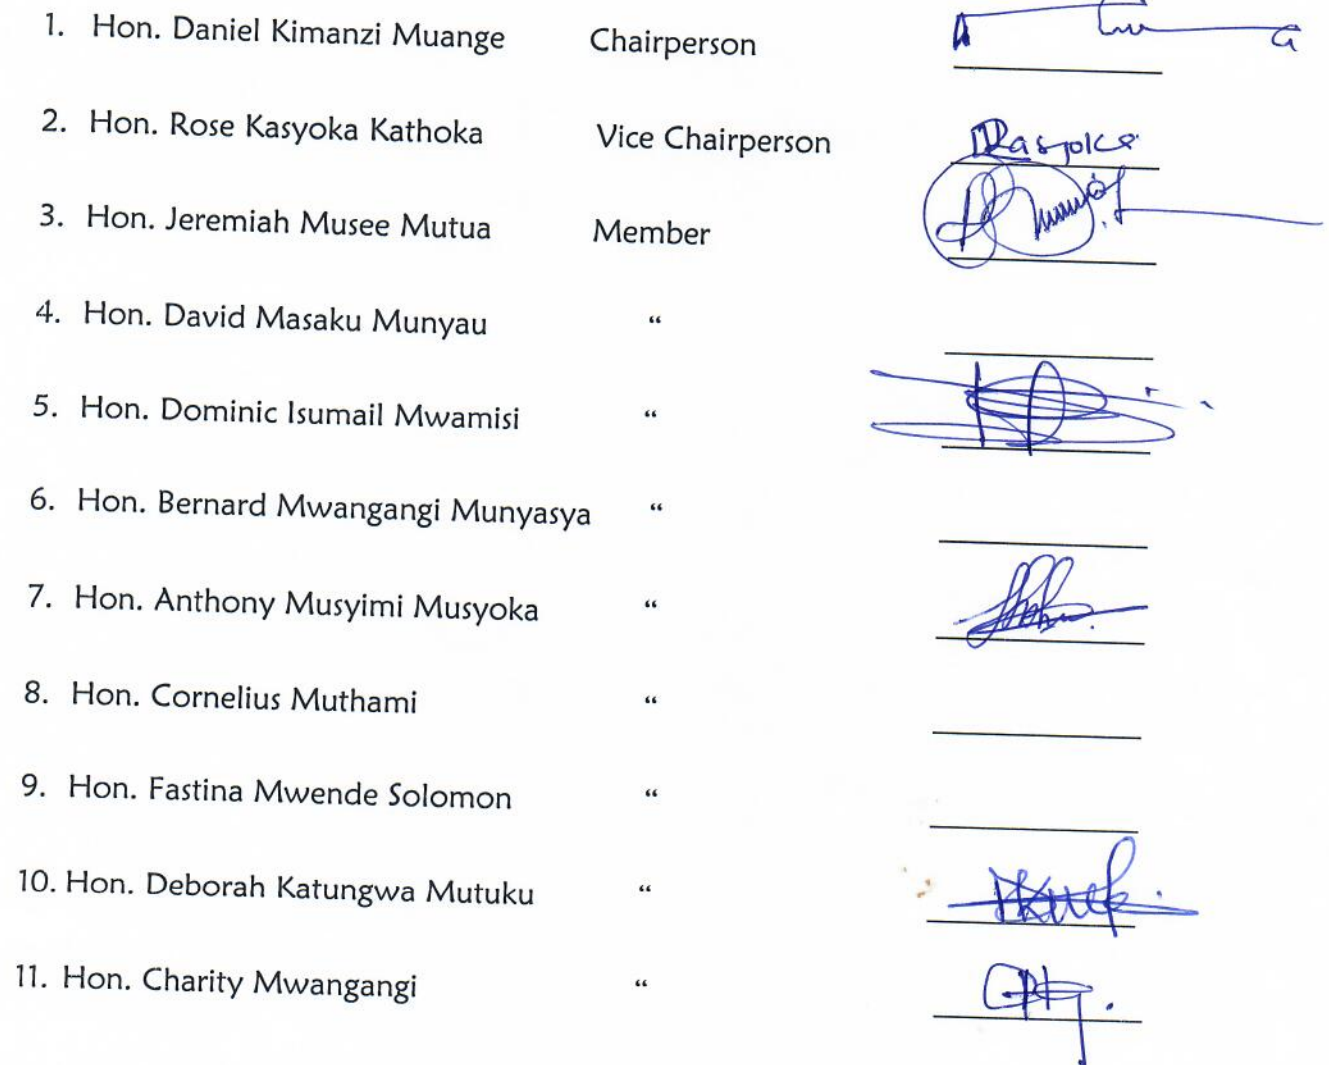 1. Hon. Daniel Kimanzi Muange Chairperson
2. Hon. Rose Kasyoka Kathoka Vice Chairperson
3. Hon. Jeremiah Musee Mutua Member
4. Hon. David Masaku Munyau “
5. Hon. Dominic Isumail Mwamisi “
6. Hon. Bernard Mwangangi Munyasya “
7. Hon. Anthony Musyimi Musyoka “
8. Hon. Cornelius Muthami “
9. Hon. Fastina Mwende Solomon “
10. Hon. Deborah Katungwa Mutuku “
11. Hon. Charity Mwangangi “